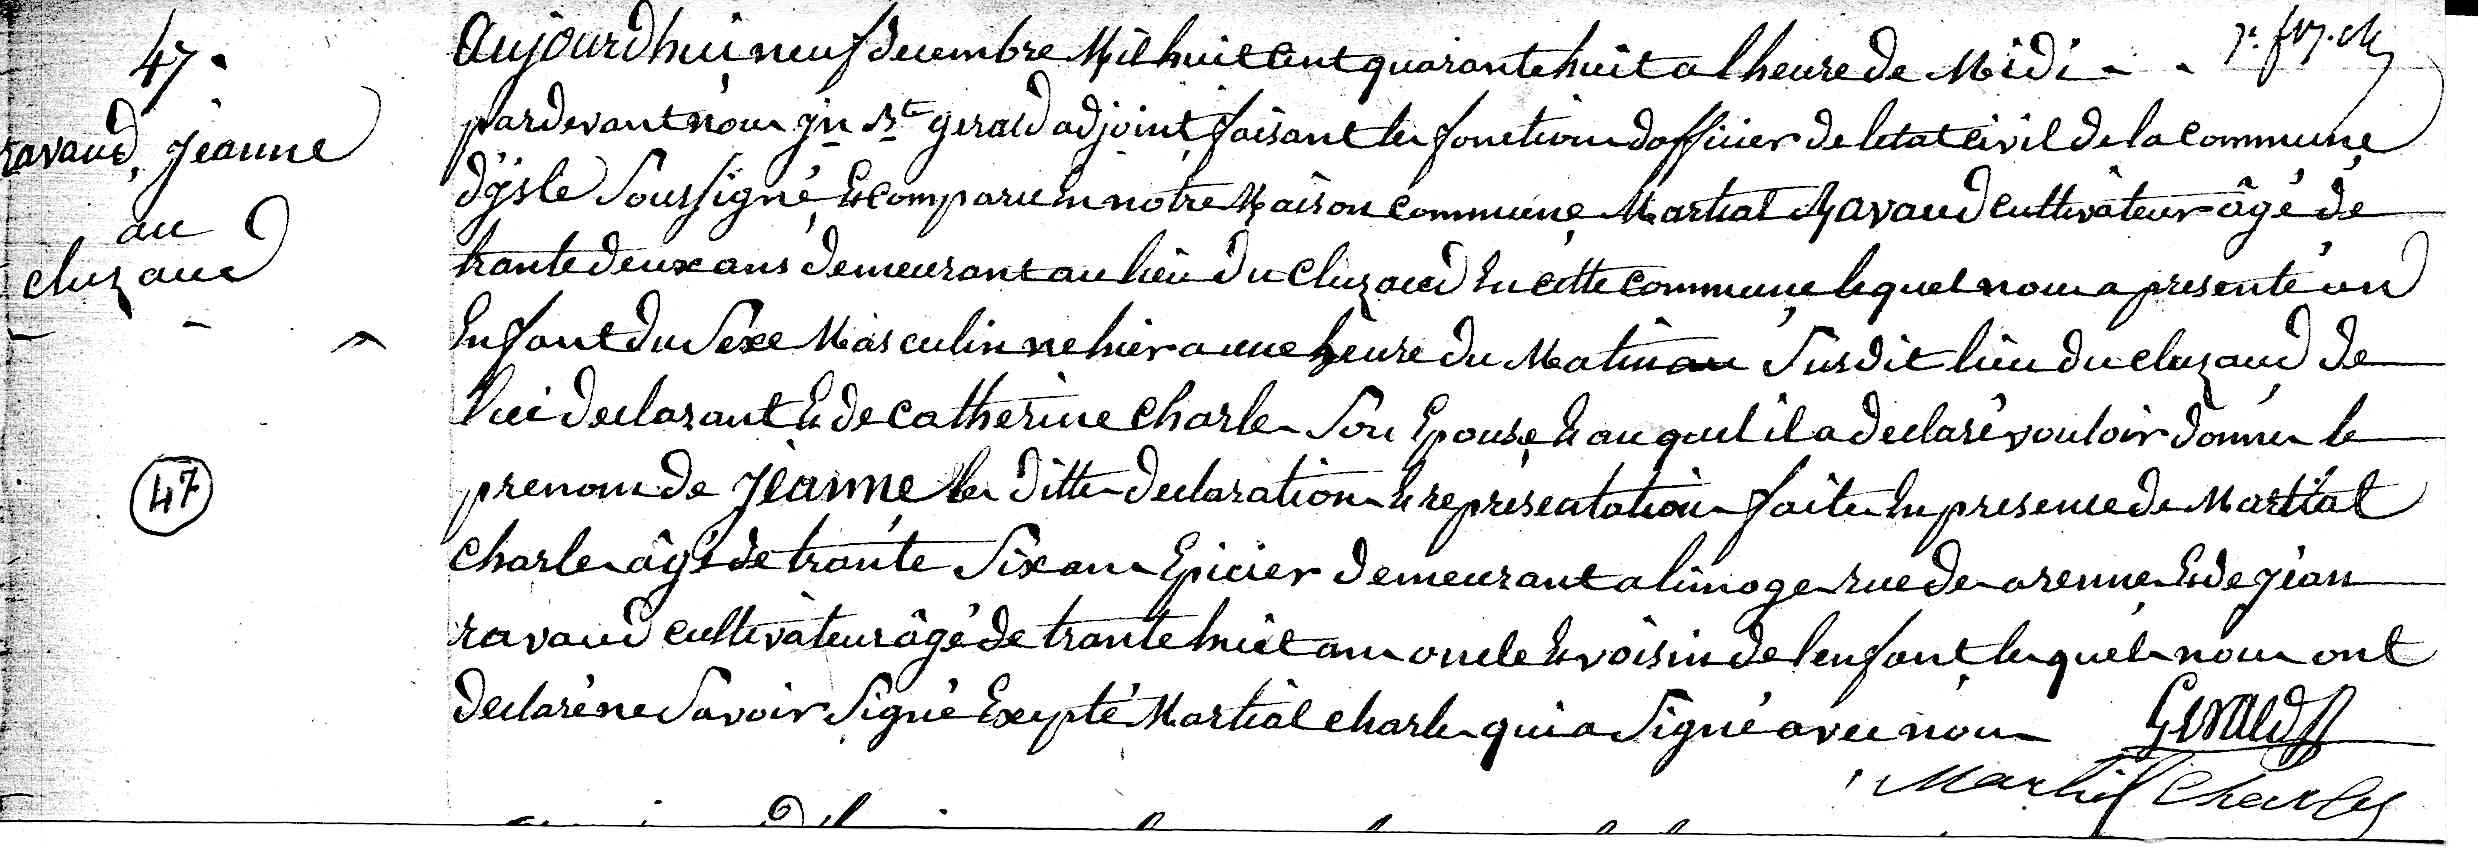 47.
ravaud, Jeanne
au
cluzaud
47
Aujourdhui neuf decembre Mil huit cent quarante huit a lheure de Midi
pardevant nous jn Bte gerald adjoint faisant les fonctions dofficier de letat Civil de la commune
d'ysle Soussigné Est comparu En nôtre Maison commune Martial Ravaud cultivateur âgé de
trante deux ans demeurant au lieu du cluzaud En cette commune lequel nous a presenté un
Enfant du Sexe Masculin ne hier a une heure du Matin au Susdit lieu du cluzaud de
lui declarant Et de Catherine Charles Son Epouse Et auquel il a declaré vouloir donner le
prenom de Jeanne les dittes declaration Et representation faites En presence de Martial
Charles âgé de trante Six ans Epicier demeurant a limoges rue des arennes Et de jean
ravaud cultivateur âgé de trante huit ans oncle Et voisin de lenfant lesquels nous ont
declaré ne Savoir Signé Exepté Martial Charles qui a Signé avec nous Gerald
Martial Charles